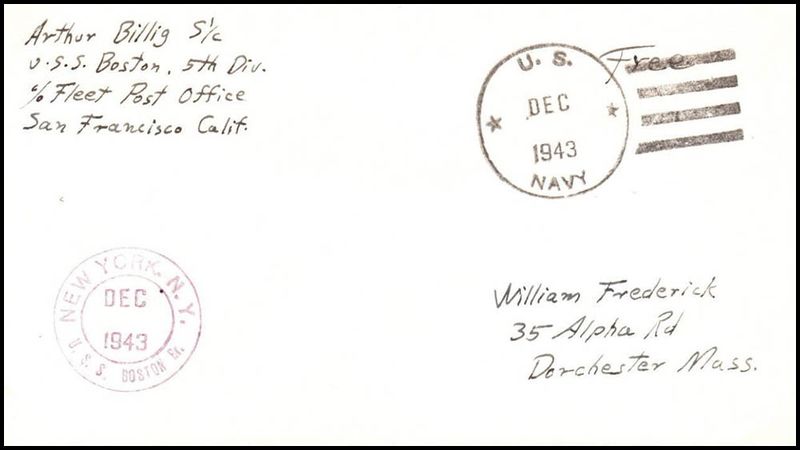 Arthur Billig S1/c
U.S.S. Boston, 5th Div.
c/o Fleet Post Office
San Francisco Calif.
Free
U. S.
DEC
1943
NAVY
NEW YORK, N.Y.
DEC
1943
U. S. S. BOSTON Br.
William Frederick
35 Alpha Rd
Dorchester Mass.